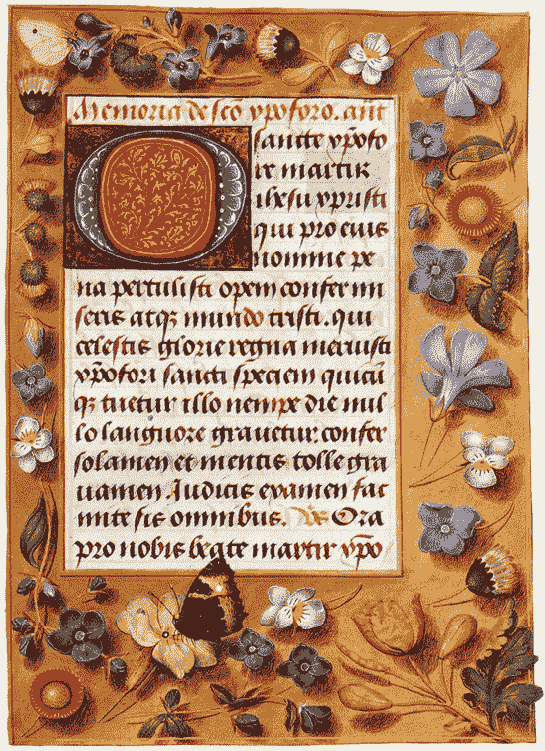 Memoria de scō xp̄oforo. an̄t
O sancte xp̄ofo
re martir
ihesu xpristi
qui pro eius
nomine pe
na pertulisti opem confer mi
seris atqꝫ mundo tristi. qui
celestis glorie regna meruisti
xp̄ofori sancti speciem quicū
qꝫ tuetur illo nempe die nul
lo languore grauetur: confer
solamen et mentis tolle gra
uamen. Iudicis examen fac
mite sis omnibus. Vs Ora
pro nobis beate martir xp̄o